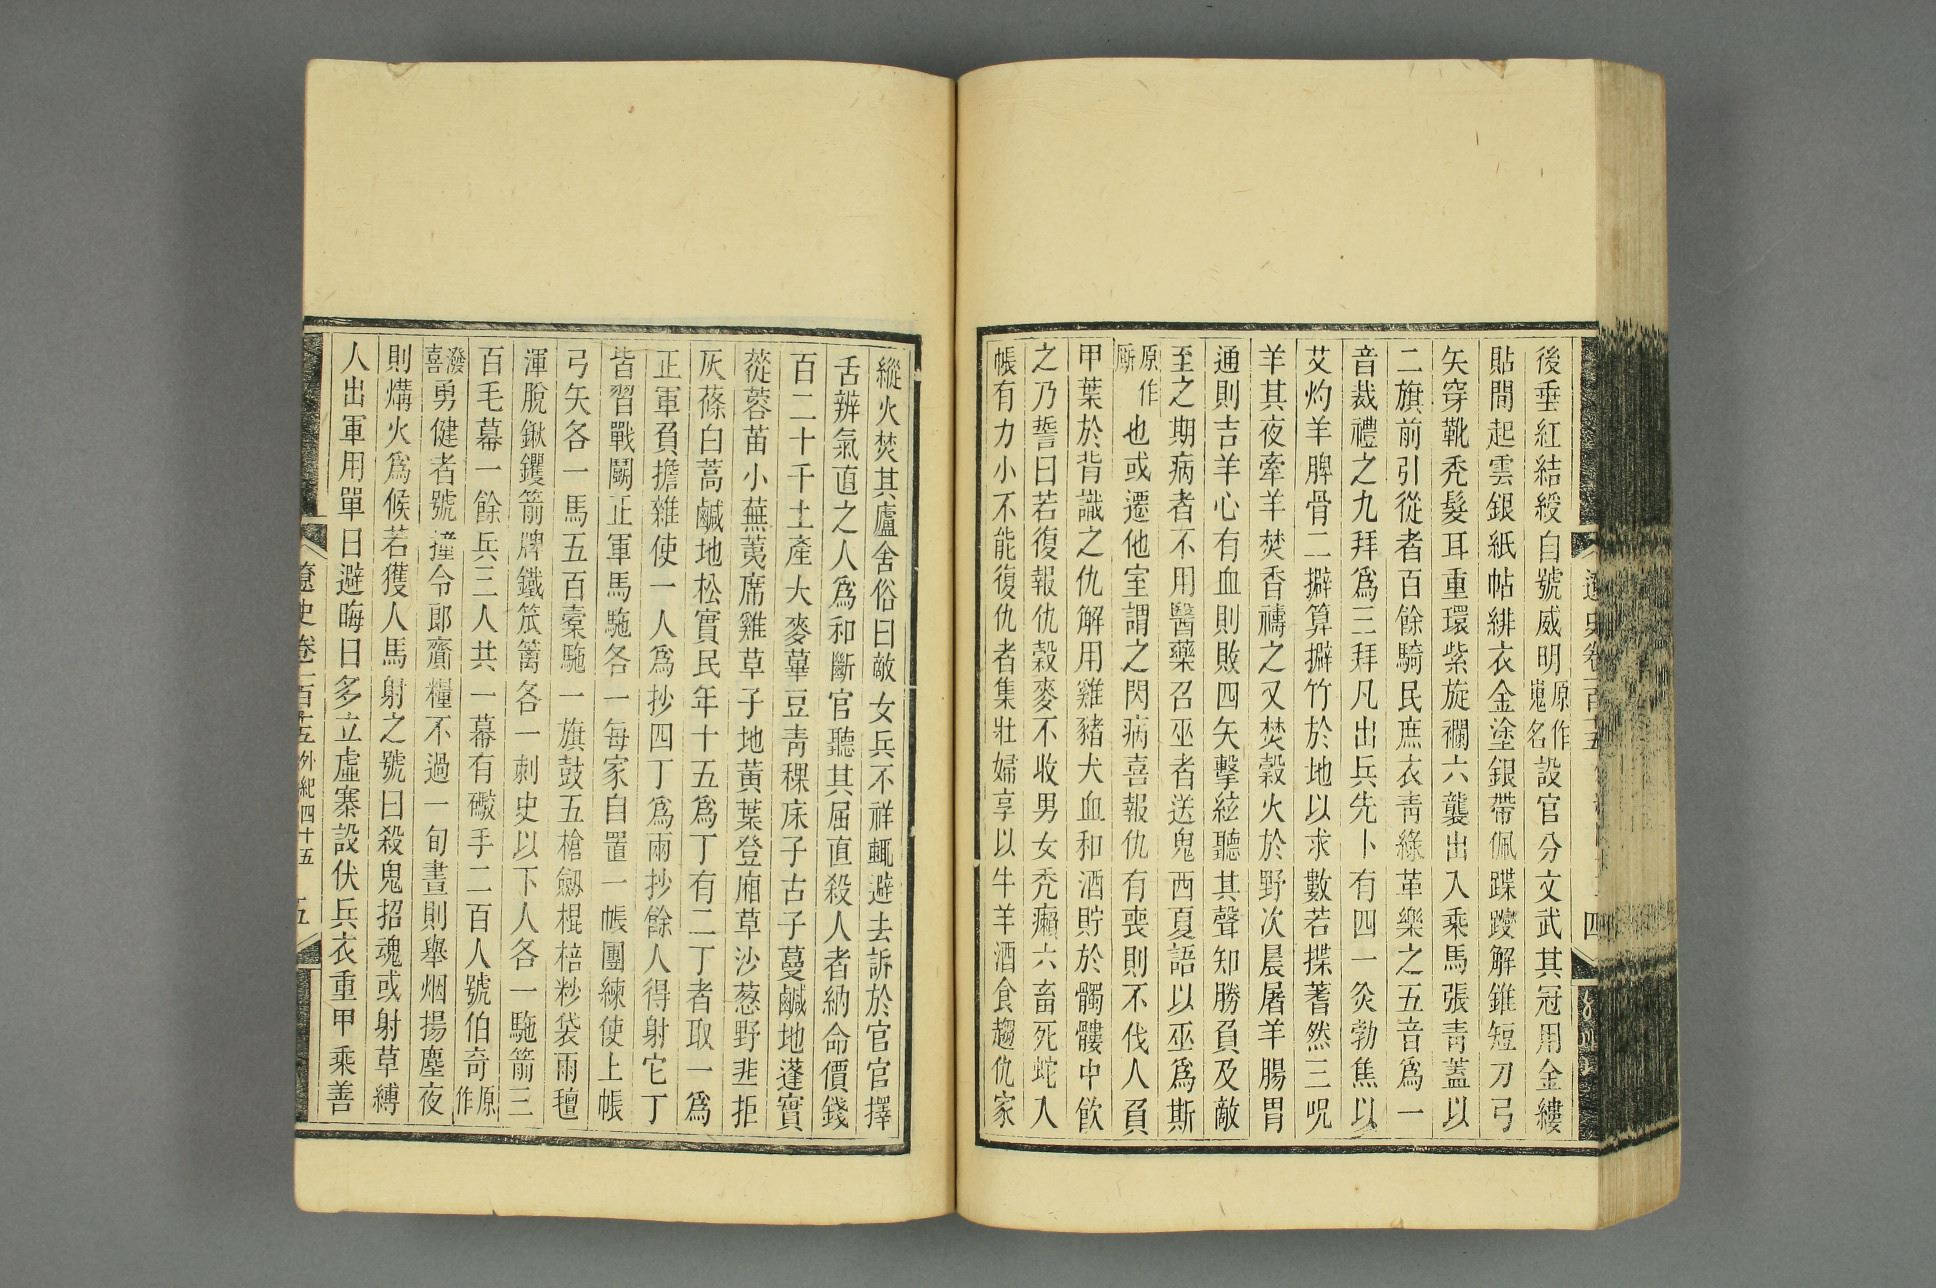 後垂紅結綬自號威明原作嵬名設官分文武其冠用金縷
貼間起雲銀紙帖緋衣金塗銀帶佩蹀躞解錐短刀弓
矢穿靴禿髮耳重環紫旋襴六襲出入乘馬張青蓋以
二旗前引從者百餘騎民庶衣青綠革樂之五音爲一
音裁禮之九拜爲三拜凡出兵先卜有四一炙勃焦以
艾灼羊脾骨二擗算擗竹於地以求數若揲蓍然三呪
羊其夜牽羊焚香禱之又焚穀火於野次晨屠羊腸胃
通則吉羊心有血則敗四矢擊絃聽其聲知勝負及敵
至之期病者不用醫藥召巫者送鬼西夏語以巫爲斯
原作厮也或遷他室謂之閃病喜報仇有喪則不伐人負
甲葉於背識之仇解用雞豬犬血和酒貯於髑髏中飲
之乃誓曰若復報仇穀麥不收男女禿癩六畜死蛇入
帳有力小不能復仇者集壯婦享以牛羊酒食趨仇家
縱火焚其廬舍俗曰敵女兵不祥輒避去訴於官官擇
舌辨氣直之人爲和斷官聽其屈直殺人者納命價錢
百二十千土產大麥蓽豆青稞床子古子蔓鹹地蓬實
蓯蓉苗小蕪荑席雞草子地黃葉登廂草沙葱野韭拒
灰蓧白蒿鹹地松實民年十五爲丁有二丁者取一爲
正軍負擔雜使一人爲抄四丁爲兩抄餘人得射它丁
皆習戰鬬正軍馬駞各一每家自置一帳團練使上帳
弓矢各一馬五百橐駞一旗鼓五槍劔棍棓粆袋雨氊
渾脫鍬钁箭牌鐵笊籬各一刺史以下人各一駞箭三
百毛幕一餘兵三人共一幕有礮手二百人號伯奇原作
潑喜勇健者號撞令郎齎糧不過一旬晝則舉烟揚塵夜
則㷭火爲候若獲人馬射之號曰殺鬼招魂或射草縛
人出軍用單日避晦日多立虛寨設伏兵衣重甲乘善
遼史卷一百十五 外紀四十五 五